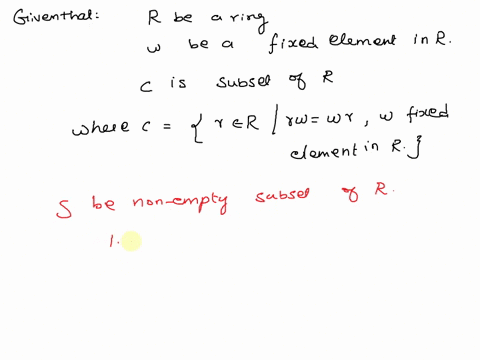 Giventhat: R be a ring
w be a fixed element in R.
C is subset of R
where C = { r ∈ R / rw = wr , w fixed
element in R. }
S be non-empty subset of R.
1.